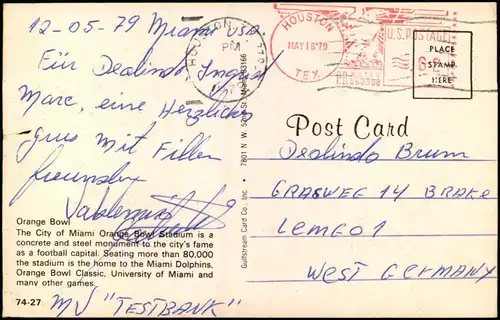 12-05-79 Miami USA
Für Dealindo Ingrid
Marc, eine Herzliche
Grus mit Fillen
freunden
Orange Bowl
The City of Miami Orange Bowl Stadium is a
concrete and steel monument to the city's fame
as a football capital. Seating more than 80,000
the stadium is the home to the Miami Dolphins,
Orange Bowl Classic, University of Miami and
many other games.
74-27
MV "TESTBANK"
HOUSTON
PM
HOUSTON
MAY 16'79
TEX.
U.S. POSTAGE
PLACE
STAMP
HERE
Gulfstream Card Co., Inc.
Post Card
Dealindo Brum
GRASWEG 14 BRAKE
LEMGO 1
WEST GERMANY